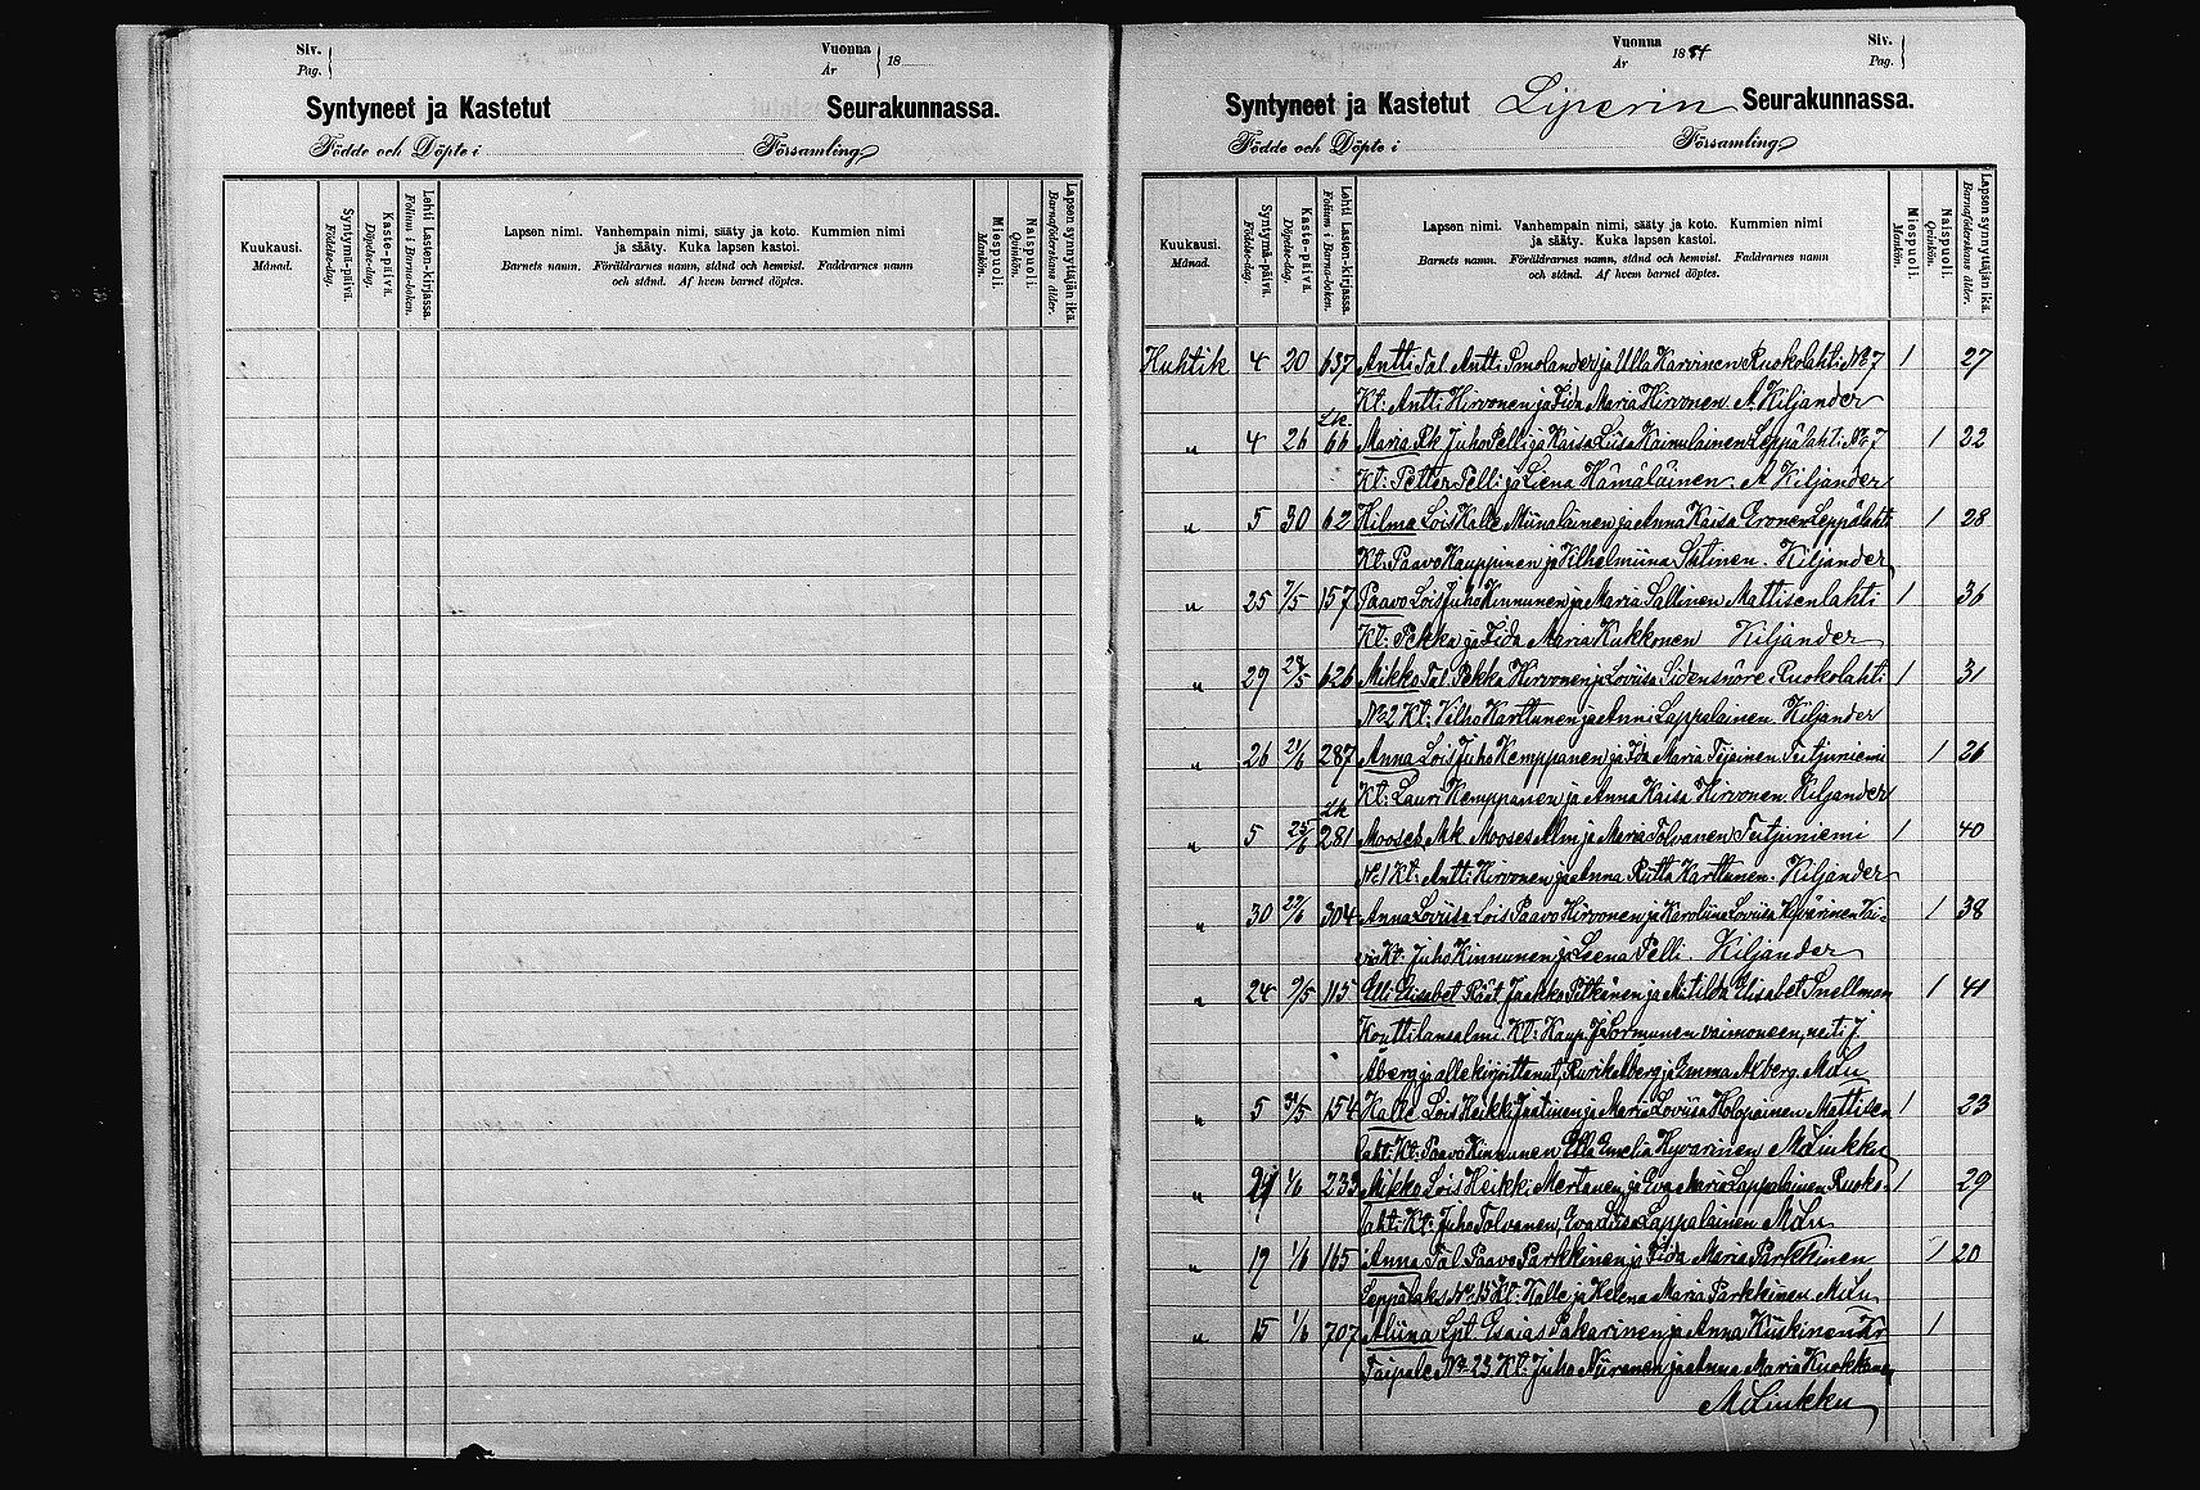 Siv.
Pag.
Vuonna
År
18
Syntyneet ja Kastetut Seurakunnassa.
Födde och Döpte i Församling
Kuukausi.
Månad.
Syntymä-päivä.
Födelse-dag.
Kaste-päivä.
Döpelse-dag.
Lehti Lasten-kirjassa.
Folium i Barna-boken.
Lapsen nimi. Vanhempain nimi, sääty ja koto. Kummien nimi
ja sääty. Kuka lapsen kastoi.
Barnets namn. Föräldrarnes namn, stånd och hemvist. Faddrarnes namn
och stånd. Af hvem barnet döptes.
Miespuoli.
Mankön.
Naispuoli.
Quinkön.
Lapsen synnyttäjän ikä.
Barnaföderskans ålder.
Vuonna
År
1884
Siv.
Pag.
Syntyneet ja Kastetut Liperin Seurakunnassa.
Födde och Döpte i Församling
Kuukausi.
Månad.
Syntymä-päivä.
Födelse-dag.
Kaste-päivä.
Döpelse-dag.
Lehti Lasten-kirjassa.
Folium i Barna-boken.
Lapsen nimi. Vanhempain nimi, sääty ja koto. Kummien nimi
ja sääty. Kuka lapsen kastoi.
Barnets namn. Föräldrarnes namn, stånd och hemvist. Faddrarnes namn
och stånd. Af hvem barnet döptes.
Miespuoli.
Mankön.
Naispuoli.
Quinkön.
Lapsen synnyttäjän ikä.
Barnaföderskans ålder.
Huhtik 4 20 637 Antti Tal Antti Smolander ja Ulla Karvinen Ruokolahti No 7 1 27
Kt: Antti Hirvonen ja Iida Maria Hirvonen A. Kiljander
Lk.
" 4 26 66 Maria Rk Juho Pelli ja Kaisa Liisa Kainulainen Leppälahti No 7 1 22
Kt: Petter Pelli ja Liena Hämäläinen. A Kiljander
" 5 30 62 Hilma Lois Kalle Miinalainen ja Anna Kaisa Eronen Leppälahti 1 28
Kt. Paavo Kauppinen ja Vilhelmiina Kiljander
" 25 7/5 157 Paavo Lois Juho Kinnunen ja Maria Sallinen Mattisenlahti 1 36
Kt: Pekka ja Iida Maria Kukkonen Kiljander
" 29 28/5 626 Mikko Tal. Pekka Hirvonen ja Loviisa Sidensnöre Ruokolahti 1 31
No 2 Kt: Vilho Karttunen ja Anni Lappalainen. Kiljander
" 26 21/6 287 Anna Lois Juho Kemppanen ja Ida Maria Tutjuniemi 1 26
Kt: Lauri Kemppanen ja Anna Kaisa Hirvonen. Kiljander
Lk
" 5 25/6 281 Mooses Mk. Mooses Alm ja Maria Tolvanen Tutjuniemi 1 40
No 1 Kt: Antti Hirvonen ja Anna Riitta Karttunen. Kiljander
" 30 27/6 304 Anna Loviisa Lois Paavo Hirvonen ja Karoliina Loviisa Hyvärinen Vai= 1 38
Kt: Juho Kinnunen ja Leena Pelli. Kiljander
" 24 9/5 115 Elli Elisabet Räät. Jaakko Pitkänen ja Matilda Elisabet Snellman 1 41
Kouttilansalmi. Kt: Kaup. J. Sormunen vaimoneen, neiti J.
Åberg ja allekirjoittanut, Rurik Alberg ja Emma Alberg. MLu
" 5 31/5 154 Kalle Lois Heikki Jaatinen ja Maria Loviisa Holopainen Mattisen 1 23
lahti Kt: Paavo Kinnunen Ulla Emelia Hyvärinen M Luukku
" 24 1/6 233 Mikko Lois Heikki Mertanen ja Eva Maria Lappalainen Ruoko- 1 29
lahti Kt: Juho Tolvanen, Eva Liisa Lappalainen MLu
" 19 1/6 165 Anna Tal. Paavo Parkkinen ja Iida Maria Parkkinen 1 20
Leppälaks No 15 Kt: Kalle ja Helena Maria Parkkinen MLu
" 15 1/6 707 Aliina Lpt. Esaias Pakarinen ja Anna Kiiskinen Kr 1
Taipale No 23 Kt: Juho Niiranen ja Anna Maria Kuokkanen
M Luukku